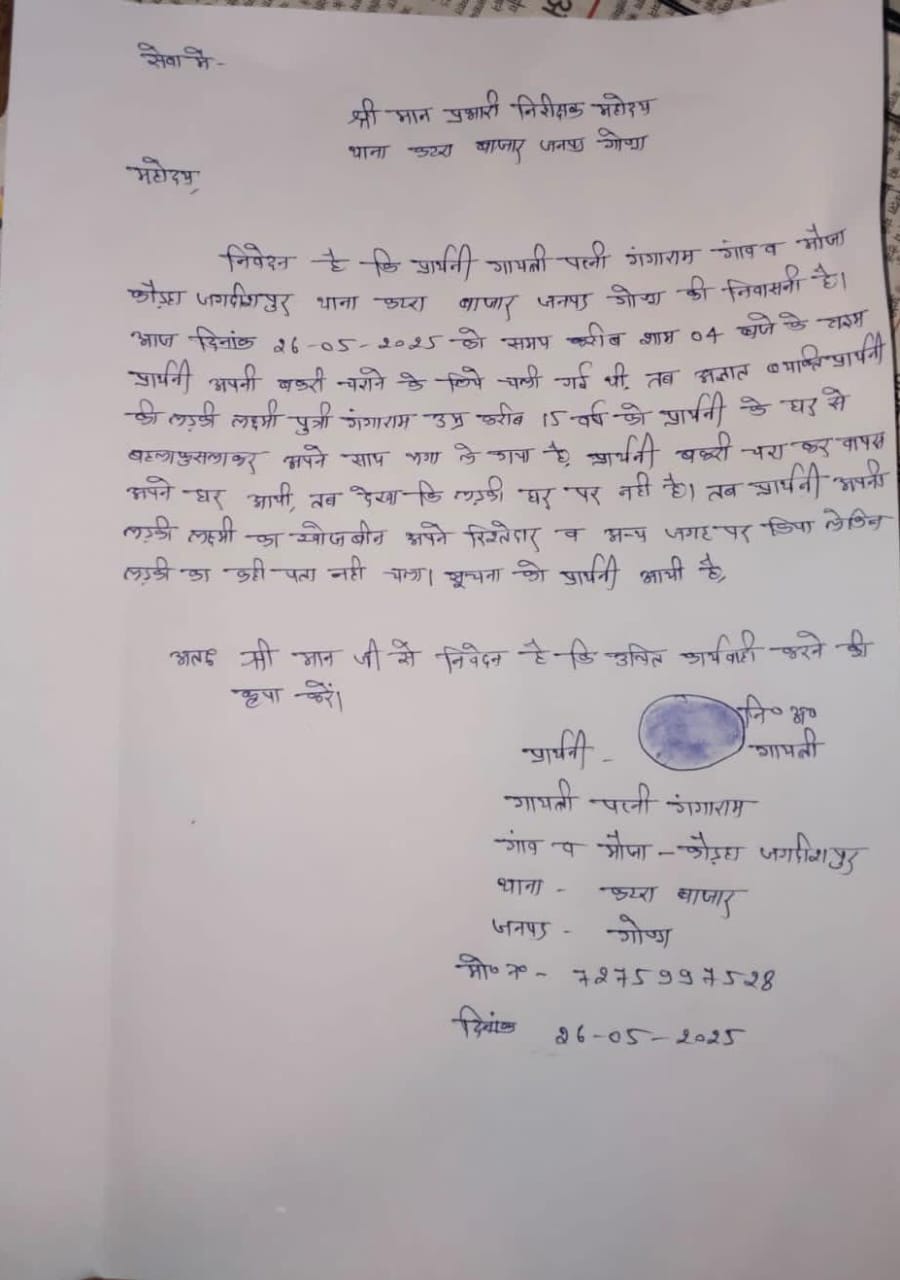 सेवा में -
श्री मान प्रभारी निरीक्षक महोदय
थाना कटरा बाजार जनपद गोण्डा
महोदय,
निवेदन है कि प्रार्थनी गायत्री पत्नी गंगाराम गांव व मौजा
कौड़हा जगदीशपुर थाना कटरा बाजार जनपद गोण्डा की निवासनी है।
आज दिनांक 26-05-2025 को समय करीब शाम 04 बजे के टाइम
प्रार्थनी अपनी बकरी चराने के लिये चली गई थी, तब अज्ञात व्यक्ति प्रार्थनी
की लड़की लक्ष्मी पुत्री गंगाराम उम्र करीब 15 वर्ष को प्रार्थनी के घर से
बहलाफुसलाकर अपने साथ भगा ले गया है, प्रार्थनी बकरी चरा कर वापस
अपने घर आयी, तब देखा कि लड़की घर पर नही है। तब प्रार्थनी अपनी
लड़की लक्ष्मी का खोजबीन अपने रिश्तेदार व अन्य जगह पर किया लेकिन
लड़की का कही पता नही चला। सूचना को प्रार्थनी आयी है,
अतः श्री मान जी से निवेदन है कि उचित कार्यवाही करने की
कृपा करें।
नि० अ०
प्रार्थनी - गायत्री
गायत्री पत्नी गंगाराम
गांव व मौजा - कौड़हा जगदीशपुर
थाना - कटरा बाजार
जनपद - गोण्डा
मो० न० - 7275997528
दिनांक 26-05-2025